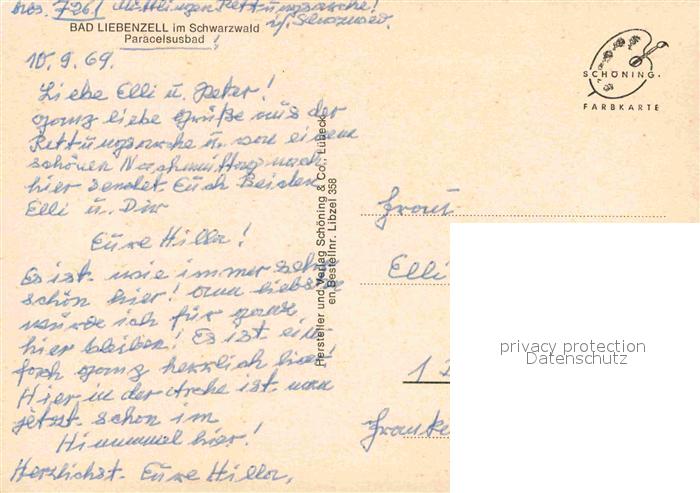 7261 Möttlingen Rettungsarche!
i/. Schwarzwald.
BAD LIEBENZELL im Schwarzwald
Paracelsusbad !
10.9.69.
Liebe Elli u. Peter!
ganz liebe Grüße aus der
Rettungsarche u. von einem
schönen Nachmittag nach
hier sendet Euch Beiden
Elli u. Dir
Eure Hilla!
Es ist wie immer sehr
schön hier! am liebsten
würde ich für ganz
hier bleiben! Es ist ein
fach ganz herrlich hier!
Hier in der Arche ist man
jetzt schon im
Himmel hier!
Herzlichst Eure Hilla.
Hersteller und Verlag Schöning & Co., Lübeck
en Bestellnr. Libzel 358
SCHÖNING.
FARBKARTE
Frau
Elli
1
Franke
privacy protection
Datenschutz